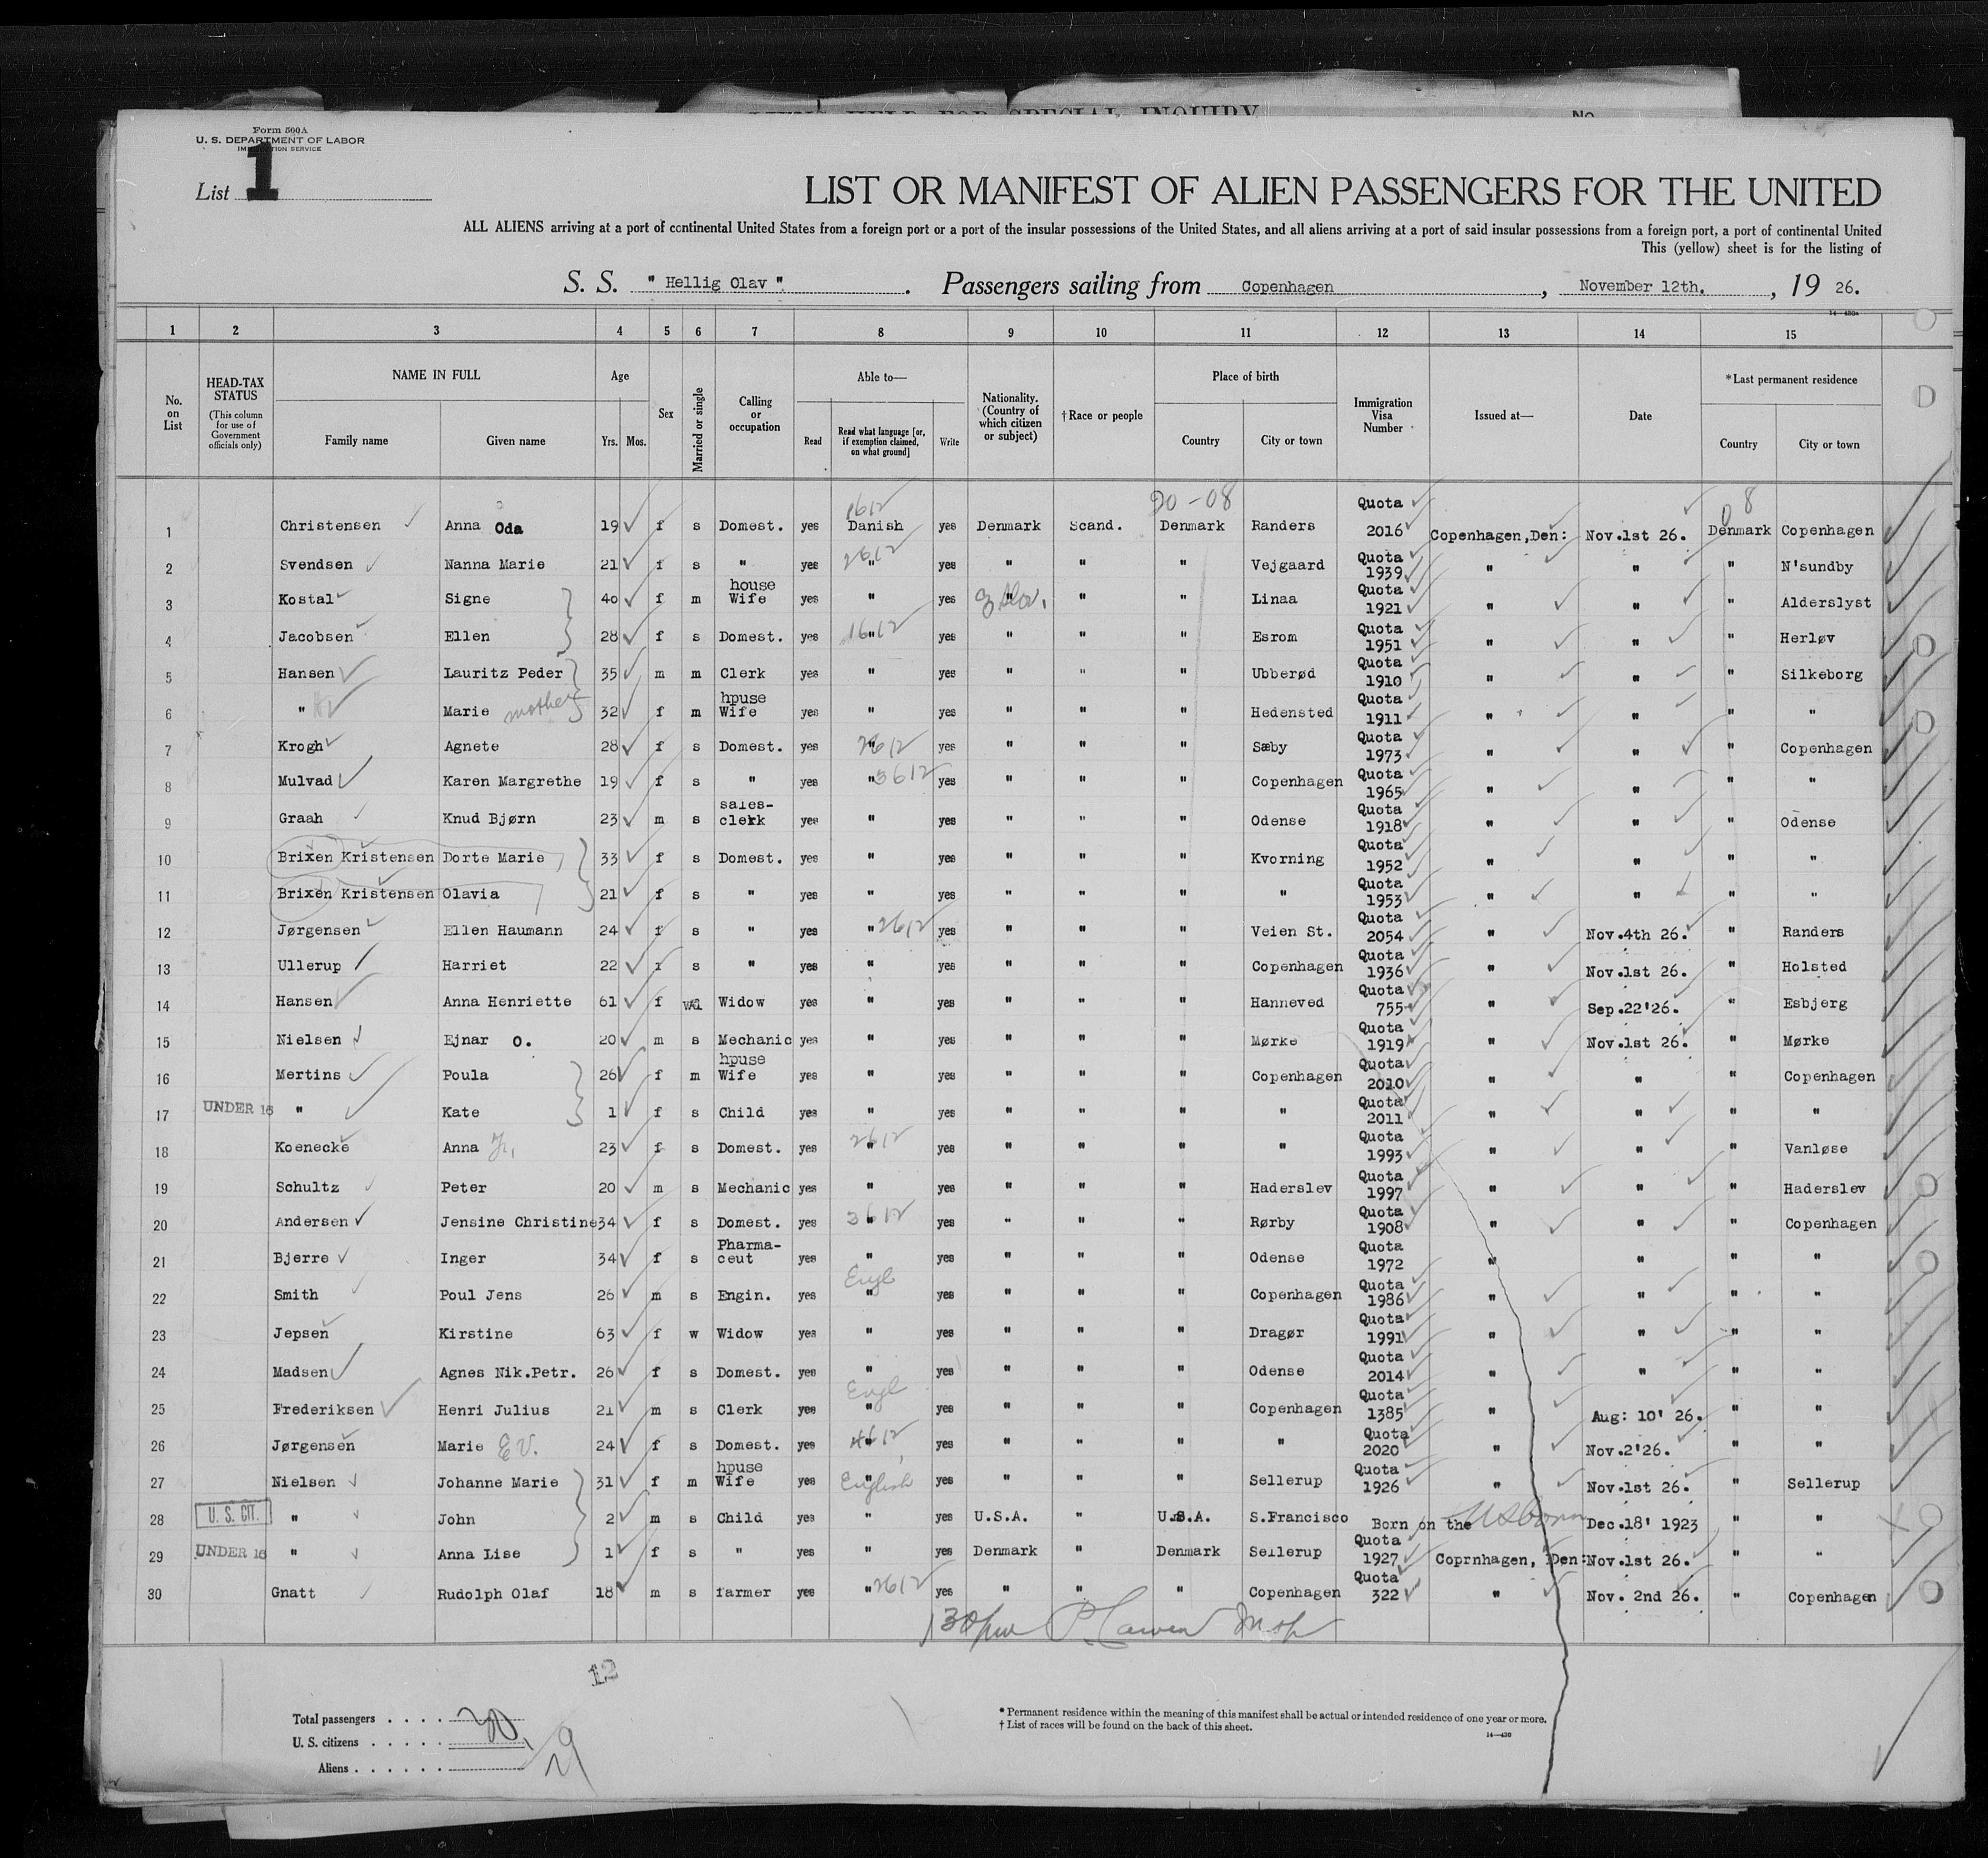 ALIENS HELD FOR SPECIAL INQUIRY
No.
Form 500A
U. S. DEPARTMENT OF LABOR
IMMIGRATION SERVICE
List 1
LIST OR MANIFEST OF ALIEN PASSENGERS FOR THE UNITED
ALL ALIENS arriving at a port of continental United States from a foreign port or a port of the insular possessions of the United States, and all aliens arriving at a port of said insular possessions from a foreign port, a port of continental United
This (yellow) sheet is for the listing of
S. S. " Hellig Olav ". Passengers sailing from Copenhagen, November 12th., 19 26.
14—430a
1 2 3 4 5 6 7 8 9 10 11 12 13 14 15
No. on List
HEAD-TAX STATUS (This column for use of Government officials only)
NAME IN FULL
Family name Given name
Age
Yrs. Mos.
Sex
Married or single
Calling or occupation
Able to—
Read
Read what language [or, if exemption claimed, on what ground]
Write
Nationality. (Country of which citizen or subject)
†Race or people
Place of birth
Country City or town
Immigration Visa Number
Issued at—
Date
*Last permanent residence
Country City or town
1612 20-08 08
1 Christensen Anna Oda 19 f s Domest. yes Danish yes Denmark Scand. Denmark Randers Quota 2016 Copenhagen,Den: Nov.1st 26. Denmark Copenhagen
2 Svendsen Nanna Marie 21 f s " yes " 2612 yes " " " Vejgaard Quota 1939 " " " N'sundby
3 Kostal Signe 40 f m house Wife yes " yes " " " Linaa Quota 1921 " " " Alderslyst
4 Jacobsen Ellen 28 f s Domest. yes " 1612 yes " " " Esrom Quota 1951 " " " Herløv
5 Hansen Lauritz Peder 35 m m Clerk yes " yes " " " Ubberød Quota 1910 " " " Silkeborg
6 " Marie mother 32 f m hpuse Wife yes " yes " " " Hedensted Quota 1911 " " " "
7 Krogh Agnete 28 f s Domest. yes " 2612 yes " " " Sæby Quota 1973 " " " Copenhagen
8 Mulvad Karen Margrethe 19 f s " yes " 3612 yes " " " Copenhagen Quota 1965 " " " "
9 Graah Knud Bjørn 23 m s sales-clerk yes " yes " " " Odense Quota 1918 " " " Odense
10 Brixen Kristensen Dorte Marie 33 f s Domest. yes " yes " " " Kvorning Quota 1952 " " " "
11 Brixen Kristensen Olavia 21 f s " yes " yes " " " " Quota 1953 " " " "
12 Jørgensen Ellen Haumann 24 f s " yes " 2612 yes " " " Veien St. Quota 2054 " Nov.4th 26. " Randers
13 Ullerup Harriet 22 f s " yes " yes " " " Copenhagen Quota 1936 " Nov.1st 26. " Holsted
14 Hansen Anna Henriette 61 f wd Widow yes " yes " " " Hanneved Quota 755 " Sep.22'26. " Esbjerg
15 Nielsen Ejnar O. 20 m s Mechanic yes " yes " " " Mørke Quota 1919 " Nov.1st 26. " Mørke
16 Mertins Poula 26 f m hpuse Wife yes " yes " " " Copenhagen Quota 2010 " " " Copenhagen
17 UNDER 16 " Kate 1 f s Child yes " yes " " " " Quota 2011 " " " "
18 Koenecke Anna 23 f s Domest. yes " 2612 yes " " " " Quota 1993 " " " Vanløse
19 Schultz Peter 20 m s Mechanic yes " yes " " " Haderslev Quota 1997 " " " Haderslev
20 Andersen Jensine Christine 34 f s Domest. yes " 3612 yes " " " Rørby Quota 1908 " " " Copenhagen
21 Bjerre Inger 34 f s Pharma-ceut yes " yes " " " Odense Quota 1972 " " " "
22 Smith Poul Jens 26 m s Engin. yes Engl " yes " " " Copenhagen Quota 1986 " " " "
23 Jepsen Kirstine 63 f w Widow yes " yes " " " Dragør Quota 1991 " " " "
24 Madsen Agnes Nik.Petr. 26 f s Domest. yes " yes " " " Odense Quota 2014 " " " "
25 Frederiksen Henri Julius 21 m s Clerk yes Engl " yes " " " Copenhagen Quota 1385 " Aug: 10' 26. " "
26 Jørgensen Marie E.V. 24 f s Domest. yes " 4612 yes " " " " Quota 2020 " Nov.2'26. " "
27 Nielsen Johanne Marie 31 f m hpuse Wife yes " English yes " " " Sellerup Quota 1926 " Nov.1st 26. " Sellerup
28 U. S. CIT. " John 2 m s Child yes " yes U.S.A. " U.S.A. S.Francisco Born on the US born Dec.18' 1923 " "
29 UNDER 16 " Anna Lise 1 f s " yes " yes Denmark " Denmark Sellerup Quota 1927 Coprnhagen, Den: Nov.1st 26. " "
30 Gnatt Rudolph Olaf 18 m s farmer yes " 2612 yes " " " Copenhagen Quota 322 " Nov. 2nd 26. " Copenhagen
130pm
12
Total passengers . . . . 30
U. S. citizens . . . . . 1
Aliens . . . . . . 29
* Permanent residence within the meaning of this manifest shall be actual or intended residence of one year or more.
† List of races will be found on the back of this sheet.
14—430